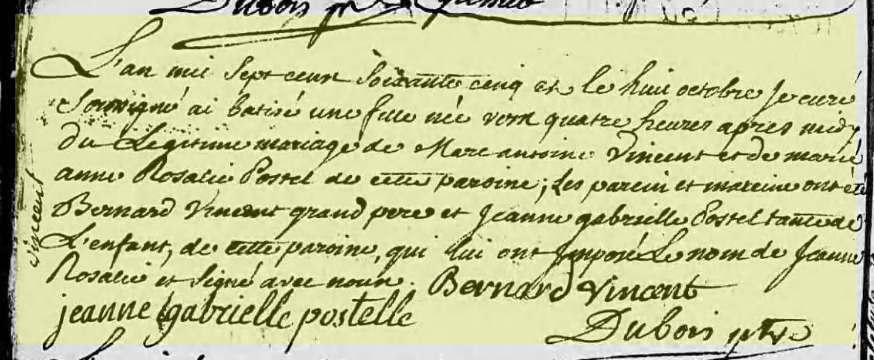 Dubois ptre
L'an mil sept cens soixante cinq et le huit octobre je curé
soussigné ai batisé une fille née vers quatre heures apres midy
du Legitime mariage de Marc antoine Vincent et de marie
anne Rosalie Postel de cette paroisse; les parein et mareine ont été
Bernard Vincent grand pere et Jeanne gabrielle Postel tante de
L'enfant, de cette paroisse, qui lui ont Imposé Le nom de Jeanne
Rosalie et signé avec nous. Bernard Vincent
jeanne gabrielle postelle
Dubois ptre
vincent